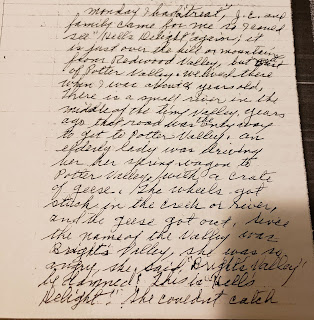 Monday I had a "treat", J.C. and
family came for me so I could
see "Hells Delight" again, it
is just over the hill or mountain
from Redwood Valley, but
of Potter Valley. we lived there
when I was about years old,
There is a small river in the
middle of the tiny Valley, years
ago that road was only way
to get to Potter Valley. an
elderly lady was driving
her her spring wagon to
Potter Valley, with a crate
of geese. The wheels got
stuck in the creek or river,
and the geese got out, since
the name of the Valley was
Bright's Valley, she was so
angry she said, "Bright's Valley
be damned! This is "Hells
Delight!" She couldn't catch